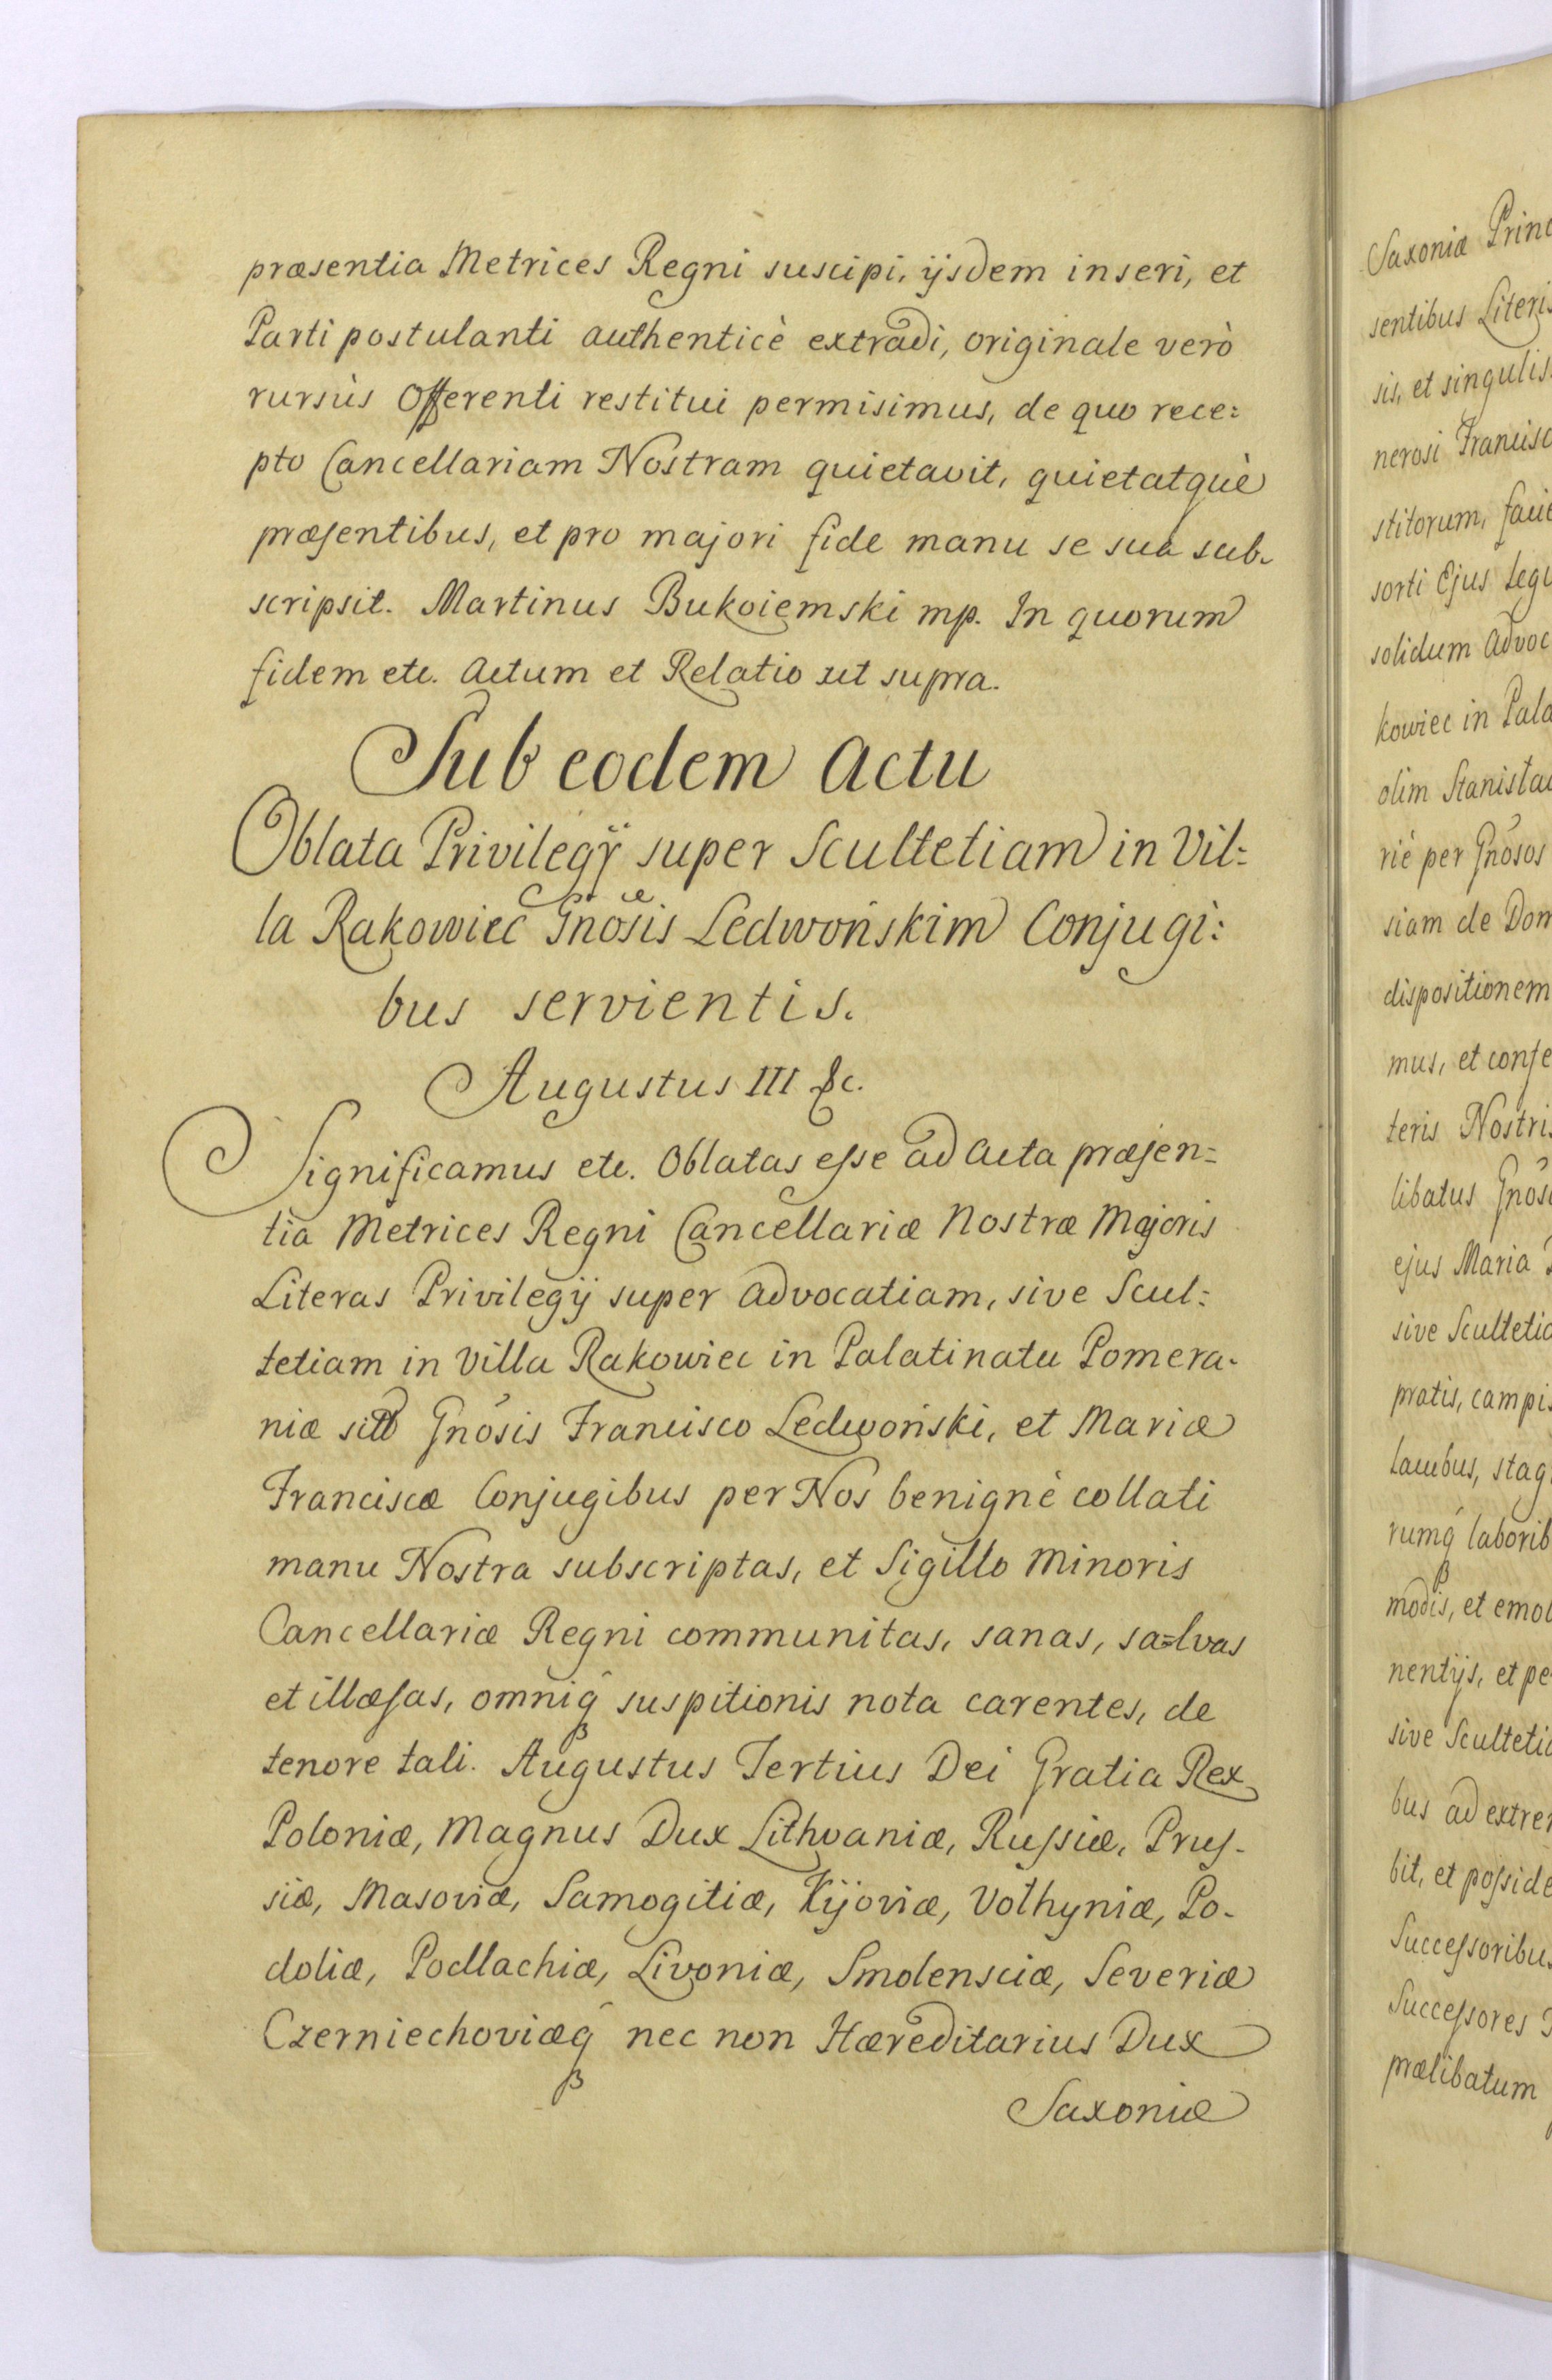 præsentia Metrices Regni suscipi, ijsdem inseri, et
Parti postulanti authenticè extradi, originale verò
rursùs Offerenti restitui permisimus, de quo rece:
pto Cancellariam Nostram quietavit, quietatquè
præsentibus, et pro majori fide manu se sua sub-
scripsit. Martinus Bukoiemski mp. In quorum
fidem etc. Actum et Relatio ut supra.
Sub eodem Actu
Oblata Privilegÿ super Scultetiam in Vil:
la Rakowiec Gnõsis Ledwońskim Conjugi:
bus servientis.
Augustus III &c.
Significamus etc. Oblatas esse ad Acta præsen=
tia Metrices Regni Cancellariæ Nostræ Majoris
Literas Privilegij super Advocatiam, sive Scul:
tetiam in Villa Rakowiec in Palatinatu Pomera-
niæ sitto Gnõsis Francisco Ledwoński, et Mariæ
Franciscæ Conjugibus per Nos benignè collati
manu Nostra subscriptas, et Sigillo Minoris
Cancellariæ Regni communitas, sanas, sa=lvas
et illæsas, omniq́ suspitionis nota carentes, de
tenore tali. Augustus Tertius Dei Gratia Rex
Poloniæ, Magnus Dux Lithvaniæ, Russiæ, Prus-
siæ, Masoviæ, Samogitiæ, Kijoviæ, Volhyniæ, Po-
doliæ, Podlachiæ, Livoniæ, Smolensciæ, Severiæ
Czerniechoviæq́ nec non Hæreditarius Dux
Saxoniæ
Saxoniæ Princ
sentibus Literis
sis, et singulis
nerosi Francisc
stitorum, facie
sorti Ejus legi
solidum Advoc
kowiec in Pala
olim Stanislai
riè per Gnõsos
siam de Dom
dispositionem
mus, et conse
teris Nostris
libatus Gnõs
ejus Maria
sive Scultetia
pratis, campis
lacubus, stag
rumq́ laborib
modis, et emol
nentijs, et pe
sive Scultetia
bus ad extrem
bit, et posside
Successoribus
Successores
prælibatum